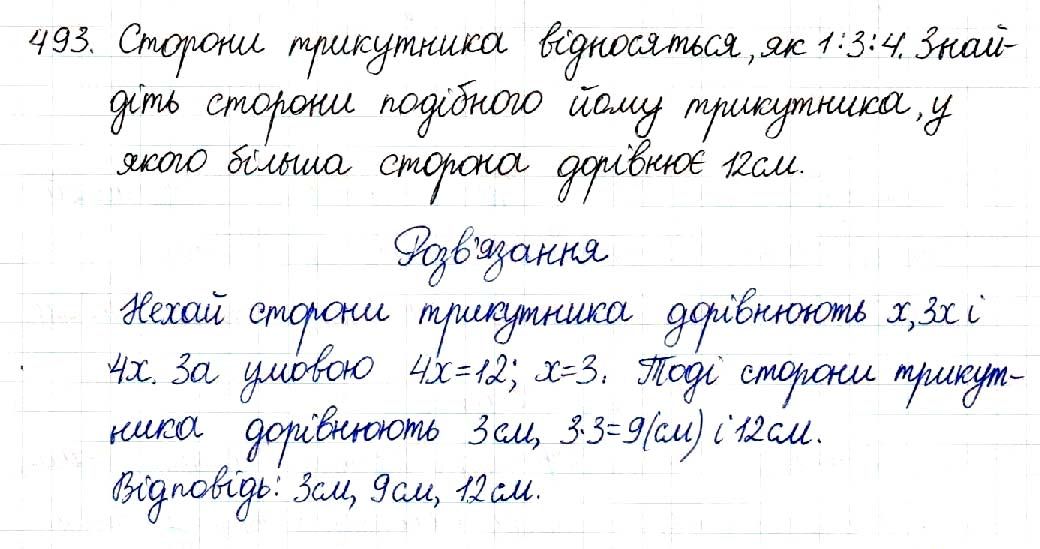 493. Сторони трикутника відносяться, як 1:3:4. Знай-
діть сторони подібного йому трикутника, у
якого більша сторона дорівнює 12см.
Розв'язання
Нехай сторони трикутника дорівнюють x, 3x і
4x. За умовою 4x=12; x=3. Тоді сторони трикут-
ника дорівнюють 3см, 3·3=9(см) і 12см.
Відповідь: 3см, 9см, 12см.